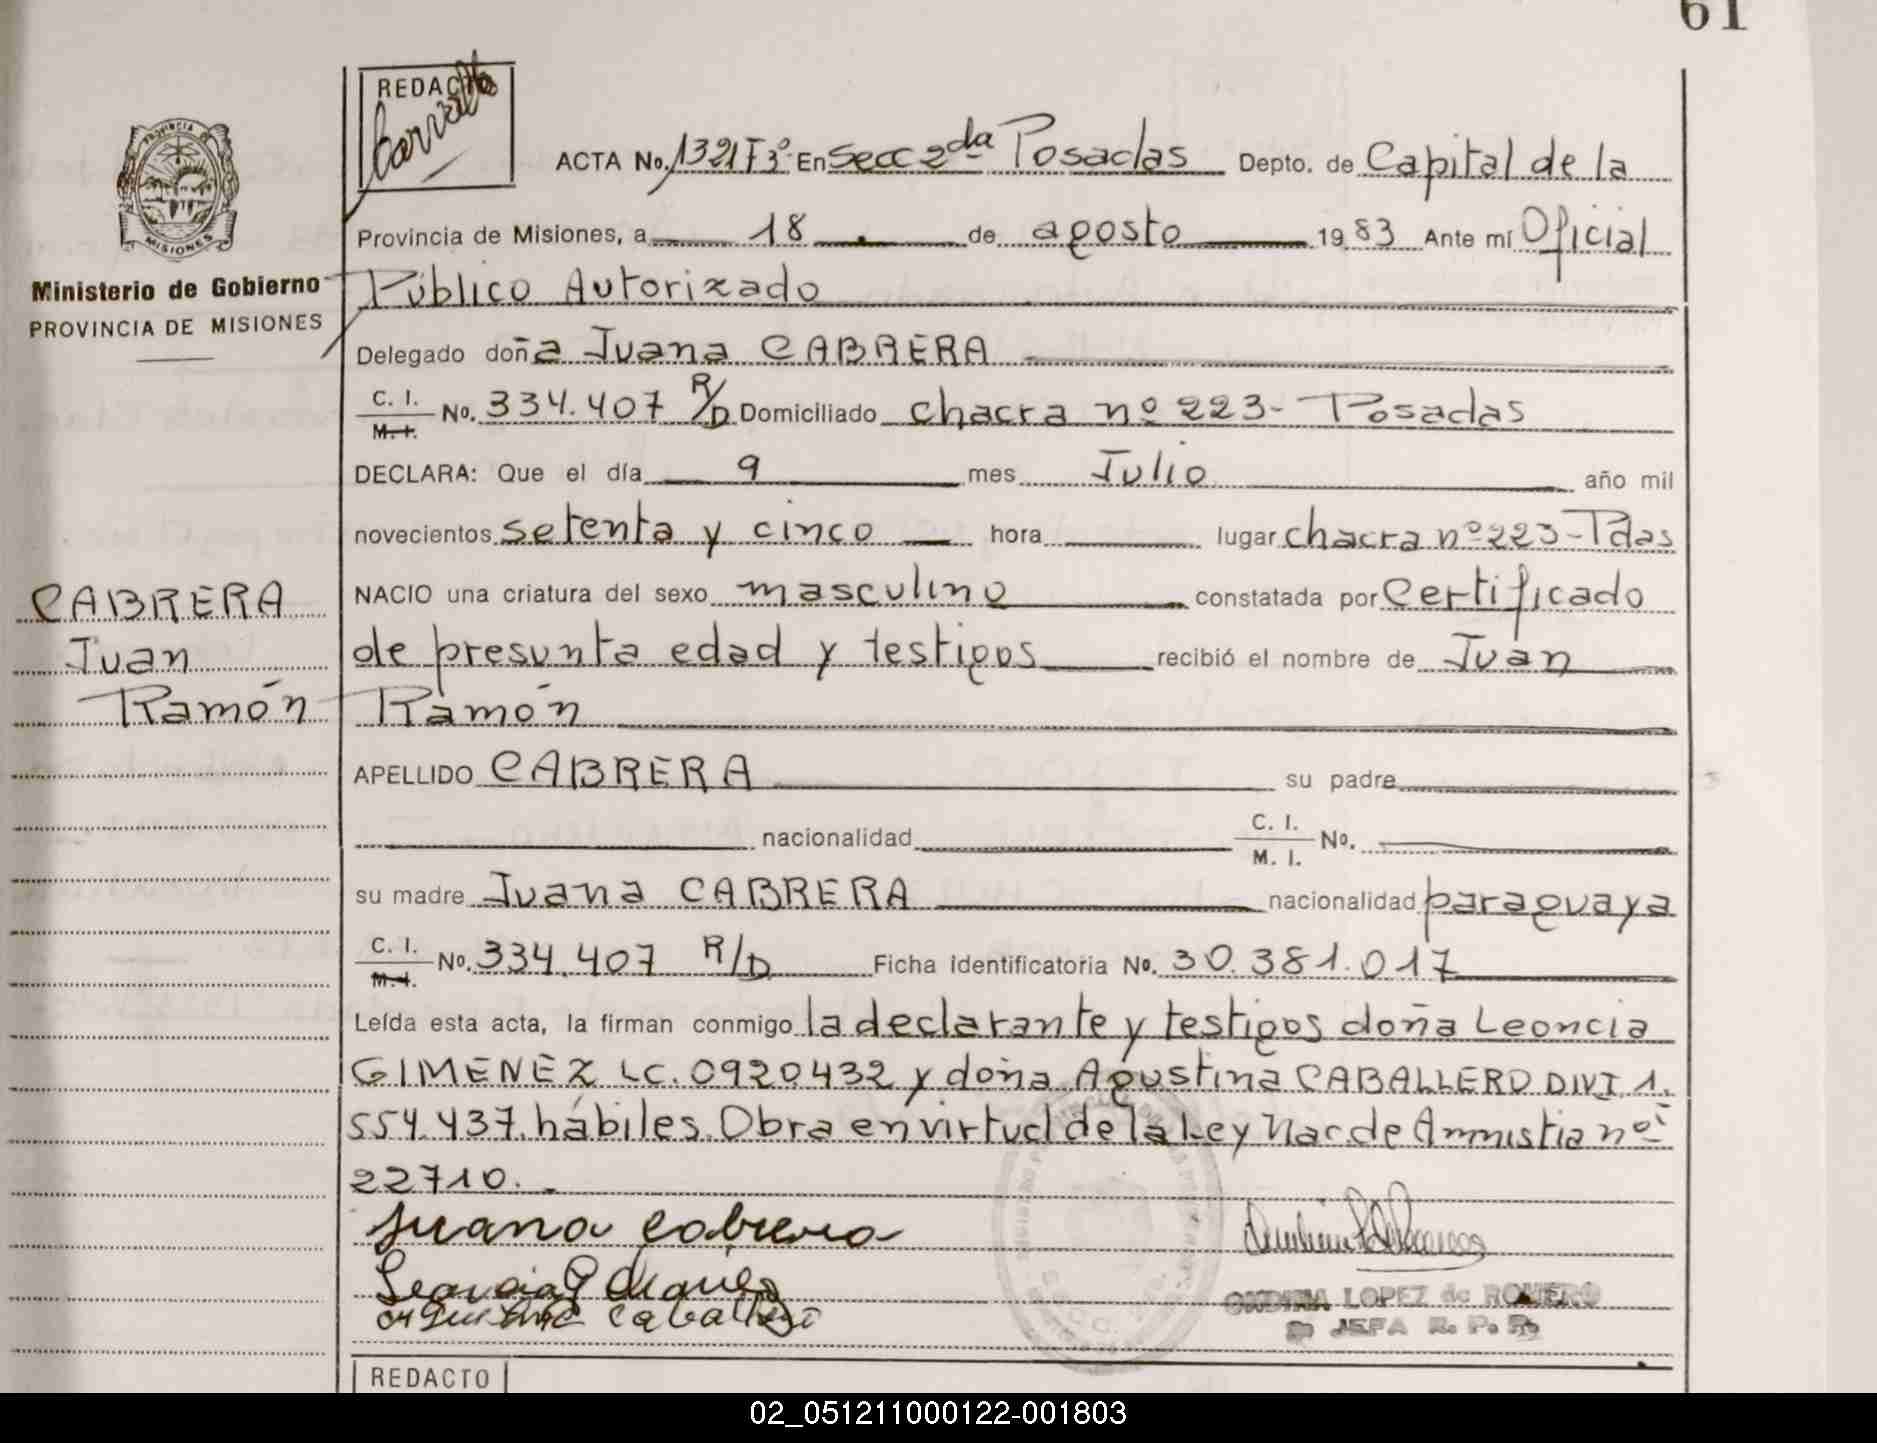 61
REDACTO
ACTA No. 1321 Tº 3º En Secc 2da Posadas Depto. de Capital de la
PROVINCIA
MISIONES
Provincia de Misiones, a 18 de agosto 1983 Ante mí Oficial
Ministerio de Gobierno
PROVINCIA DE MISIONES
Público Autorizado
Delegado doña Juana CABRERA
C. I.
M. I. No. 334.407 R/D Domiciliado chacra nº 223- Posadas
DECLARA: Que el día 9 mes Julio año mil
novecientos setenta y cinco hora lugar chacra nº 223-Pdas
CABRERA
Juan
Ramón
NACIO una criatura del sexo masculino constatada por Certificado
de presunta edad y testigos recibió el nombre de Juan
Ramón
APELLIDO CABRERA su padre
nacionalidad C. I.
M. I. No.
su madre Juana CABRERA nacionalidad paraguaya
C. I.
M. I. No. 334.407 R/D Ficha Identificatoria No. 30.381.017
Leída esta acta, la firman conmigo la declarante y testigos doña Leoncia
GIMENEZ LC. 0920432 y doña Agustina CABALLERO DNI 1.
554.437. hábiles. Obra en virtud de la Ley Nac de Amnistia nº
22710.
Juana Cabrera
Leoncia G
Caballero
LOPEZ de ROMERO
JEFA R. P.
REDACTO
02_051211000122-001803